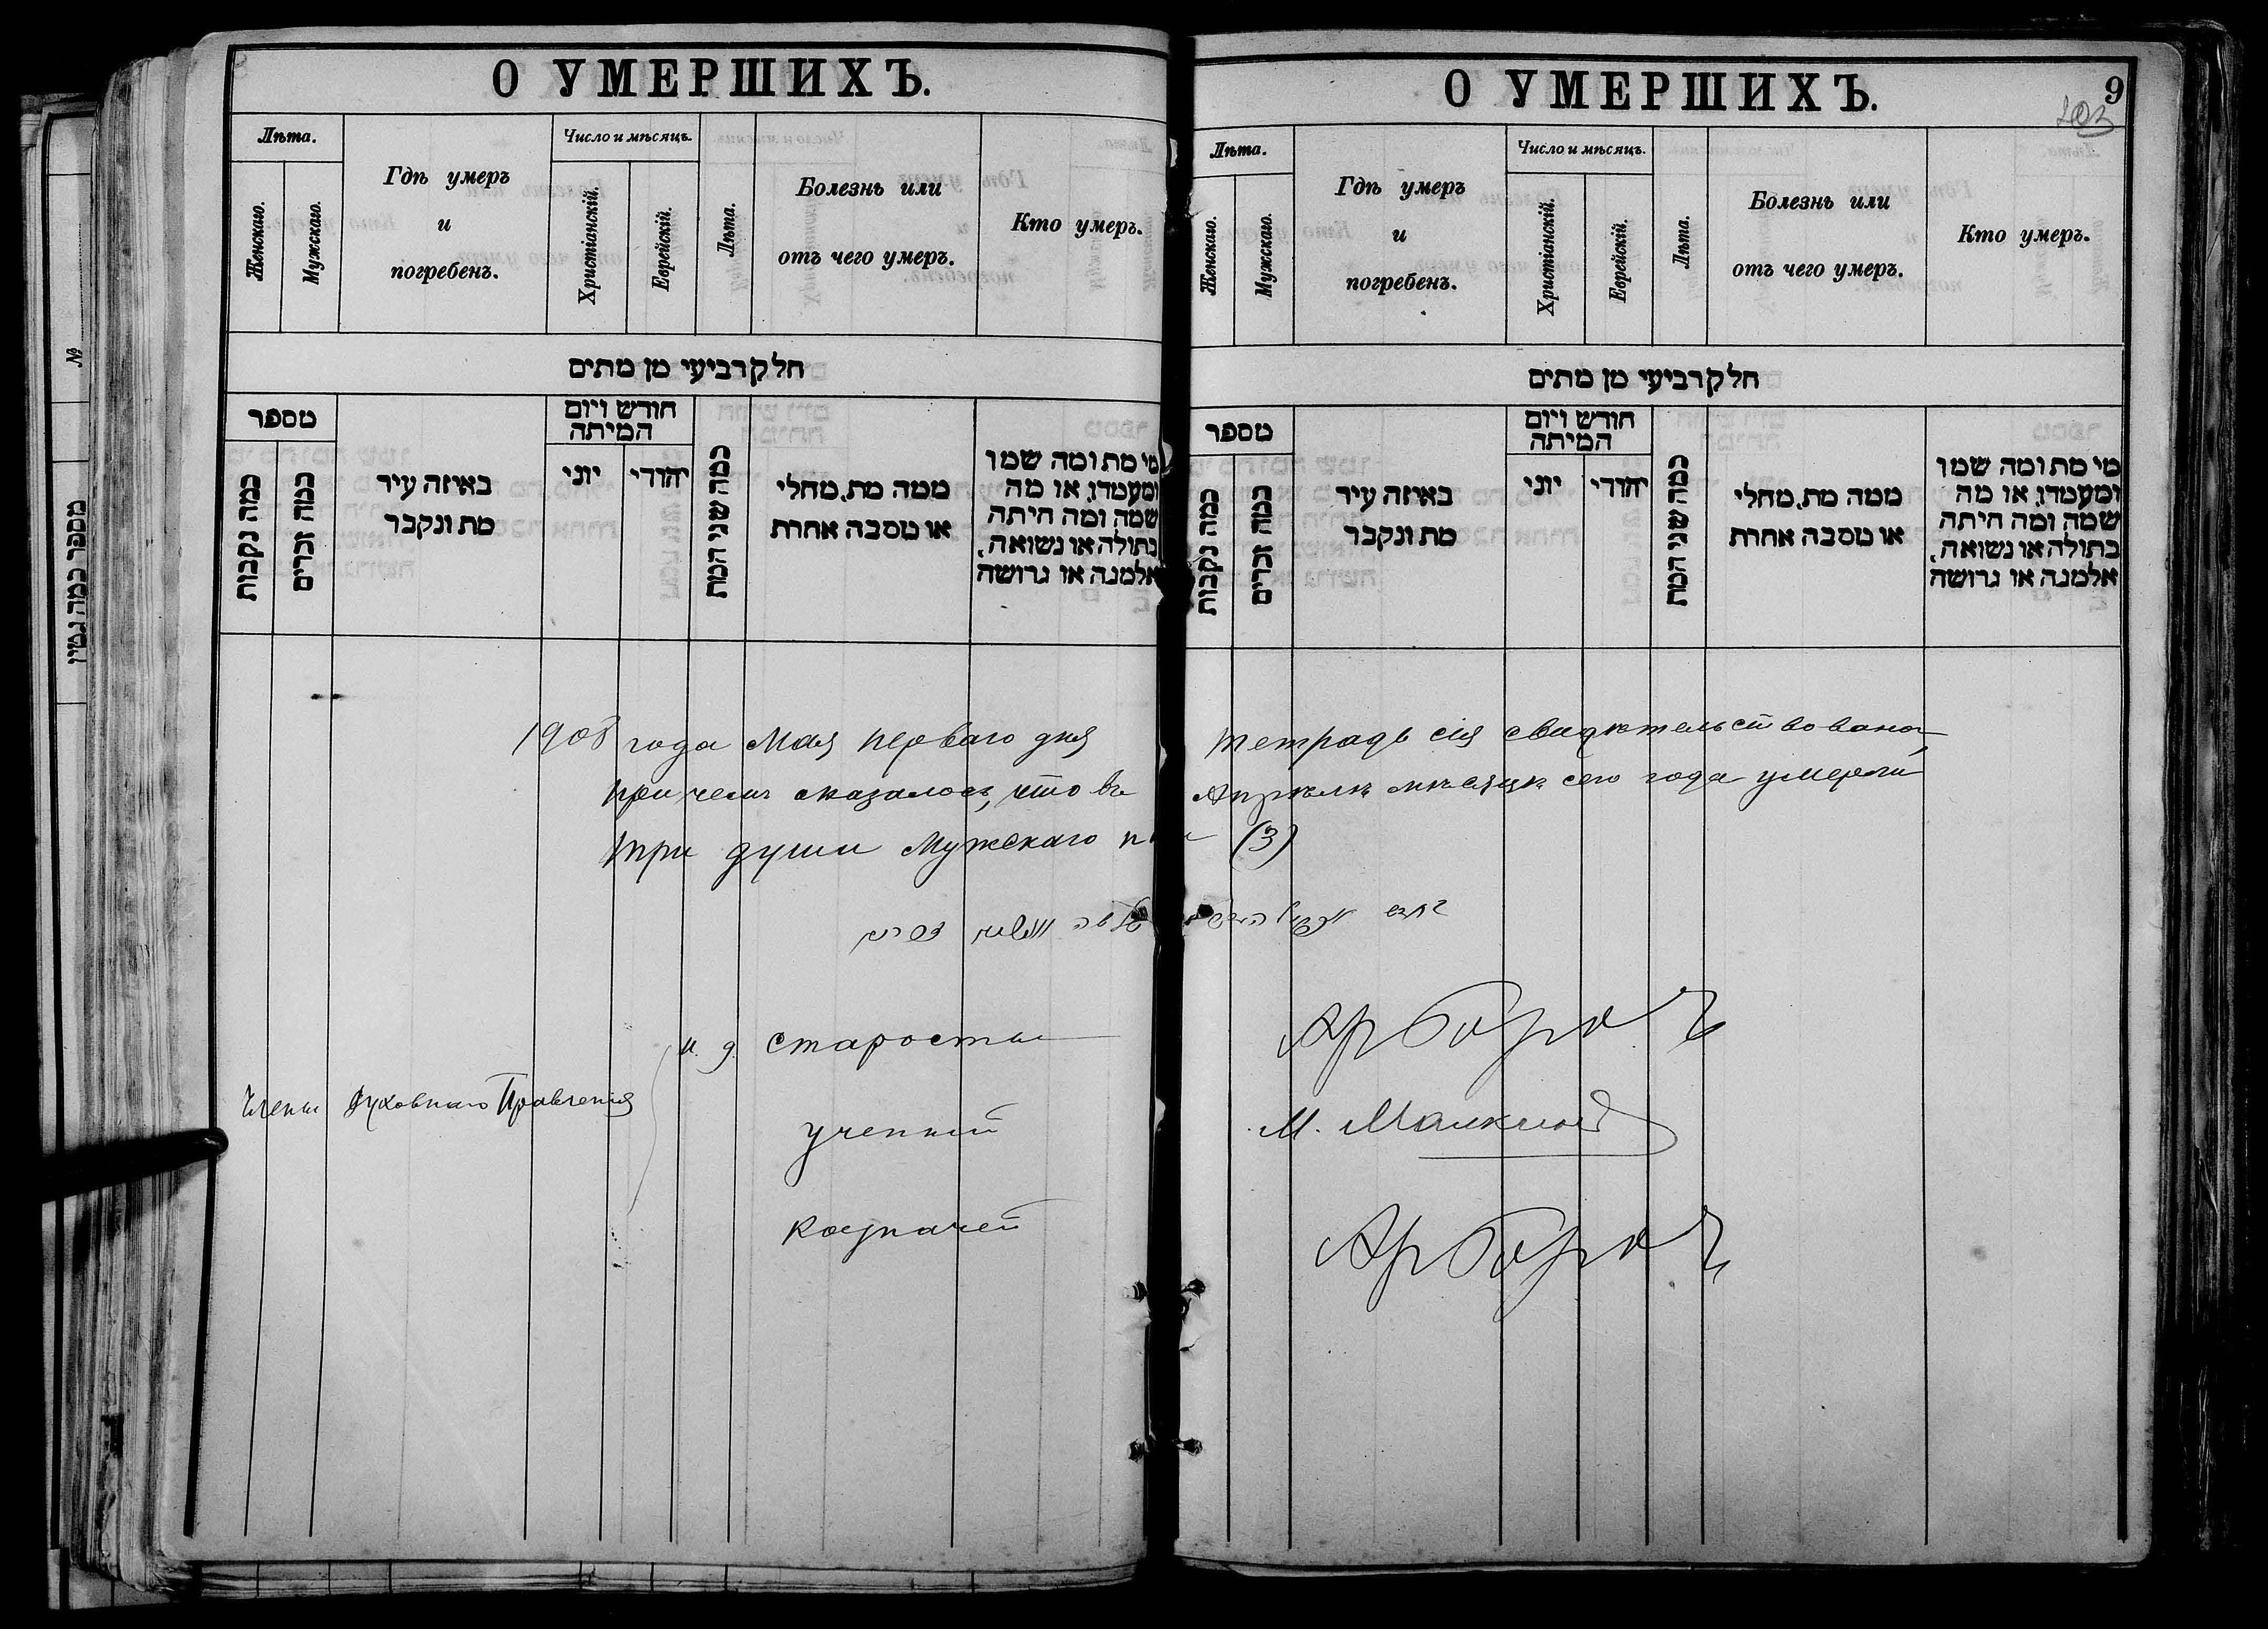 О УМЕРШИХЪ.
Лѣта.
Женскаго.
Мужскаго.
Гдѣ умеръ
и
погребенъ.
Число и мѣсяцъ.
Христіанскій.
Еврейскій.
Лѣта.
Болезнь или
отъ чего умеръ.
Кто умеръ.
חלק רביעי מן מתים
מספר
כמה נקבות
כמה זכרים
באיזה עיר
מת ונקבר
חודש ויום
המיתה
יוני
יהודי
כמה שני המת
ממה מת, מחלי
או מסבה אחרת
מי מת ומה שמו
ומעמדו, או מה
שמה ומה היתה
בתולה או נשואה,
אלמנה או גרושה
№
מספר כמה גטין
О УМЕРШИХЪ.
9
103
Лѣта.
Женскаго.
Мужскаго.
Гдѣ умеръ
и
погребенъ.
Число и мѣсяцъ.
Христіанскій.
Еврейскій.
Лѣта.
Болезнь или
отъ чего умеръ.
Кто умеръ.
חלק רביעי מן מתים
מספר
כמה נקבות
כמה זכרים
באיזה עיר
מת ונקבר
חודש ויום
המיתה
יוני
יהודי
כמה שני המת
ממה מת, מחלי
או מסבה אחרת
מי מת ומה שמו
ומעמדו, או מה
שמה ומה היתה
בתולה או נשואה,
אלמנה או גרושה
1908 года Мая перваго дня тетрадь сія свидѣтельствована,
при чемъ оказалось, что въ Апрѣлѣ мѣсяцѣ сего года умерли
три души мужскаго (3)
Члены Духовнаго Правленія
и. д. старосты
ученый М.
казначей